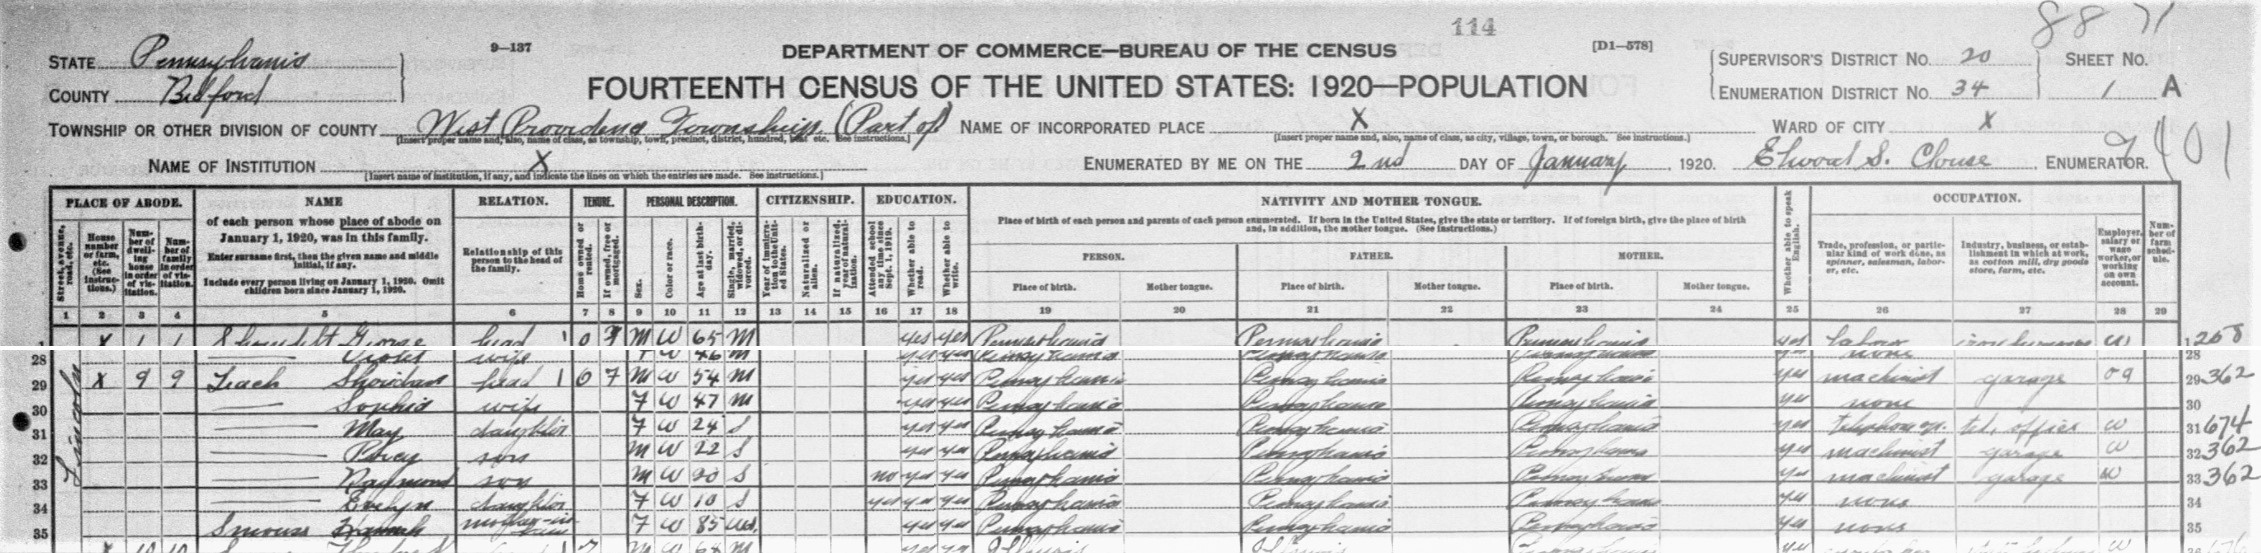 114
88 71
9-137
DEPARTMENT OF COMMERCE—BUREAU OF THE CENSUS
[D1—578]
STATE Pennsylvania
COUNTY Bedford
FOURTEENTH CENSUS OF THE UNITED STATES: 1920—POPULATION
SUPERVISOR'S DISTRICT NO. 20
ENUMERATION DISTRICT NO. 34
SHEET NO.
1 A
TOWNSHIP OR OTHER DIVISION OF COUNTY West Providence Township (Part of)
[Insert proper name and, also, name of class, as township, town, precinct, district, hundred, beat, etc. See instructions.]
NAME OF INCORPORATED PLACE X
[Insert proper name and, also, name of class, as city, village, town, or borough. See instructions.]
WARD OF CITY X
7401
NAME OF INSTITUTION X
[Insert name of institution, if any, and indicate the lines on which the entries are made. See instructions.]
ENUMERATED BY ME ON THE 2nd DAY OF January, 1920. Elwood S. Clouse, ENUMERATOR.
PLACE OF ABODE. NAME RELATION. TENURE. PERSONAL DESCRIPTION. CITIZENSHIP. EDUCATION. NATIVITY AND MOTHER TONGUE. OCCUPATION.
Street, avenue, road, etc.
House number or farm, etc. (See instructions.)
Number of dwelling house in order of visitation.
Number of family in order of visitation.
of each person whose place of abode on January 1, 1920, was in this family.
Enter surname first, then the given name and middle initial, if any.
Include every person living on January 1, 1920. Omit children born since January 1, 1920.
Relationship of this person to the head of the family.
Home owned or rented.
If owned, free or mortgaged.
Sex.
Color or race.
Age at last birthday.
Single, married, widowed, or divorced.
Year of immigration to the United States.
Naturalized or alien.
If naturalized, year of naturalization.
Attended school any time since Sept. 1, 1919.
Whether able to read.
Whether able to write.
Place of birth of each person and parents of each person enumerated. If born in the United States, give the state or territory. If of foreign birth, give the place of birth and, in addition, the mother tongue. (See instructions.)
PERSON. FATHER. MOTHER.
Place of birth. Mother tongue. Place of birth. Mother tongue. Place of birth. Mother tongue.
Whether able to speak English.
Trade, profession, or particular kind of work done, as spinner, salesman, laborer, etc.
Industry, business, or establishment in which at work, as cotton mill, dry goods store, farm, etc.
Employer, salary or wage worker, or working on own account.
Number of farm schedule.
1 2 3 4 5 6 7 8 9 10 11 12 13 14 15 16 17 18 19 20 21 22 23 24 25 26 27 28 29
1 X 1 1 George head 1 O M W 65 M yes yes Pennsylvania Pennsylvania Pennsylvania yes labor W 1 268
28 Violet wife F W 46 M yes yes Pennsylvania Pennsylvania Pennsylvania yes none 28
Lincoln
29 X 9 9 Leach Sheridan head 1 O 7 M W 54 M yes yes Pennsylvania Pennsylvania Pennsylvania yes machinist garage oa 29 362
30 Sophia wife F W 47 M yes yes Pennsylvania Pennsylvania Pennsylvania yes none 30
31 May daughter F W 24 S yes yes Pennsylvania Pennsylvania Pennsylvania yes telephone op. tel. office W 31 674
32 Percy son M W 22 S yes yes Pennsylvania Pennsylvania Pennsylvania yes machinist garage W 32 362
33 Raymond son M W 20 S no yes yes Pennsylvania Pennsylvania Pennsylvania yes machinist garage W 33 362
34 Evelyn daughter F W 10 S yes yes yes Pennsylvania Pennsylvania Pennsylvania yes none 34
35 Smouse Hannah mother-in-law F W 85 Wd. yes yes Pennsylvania Pennsylvania Pennsylvania yes none 35
X 10 10 head M W 64 M yes yes Illinois Illinois yes W